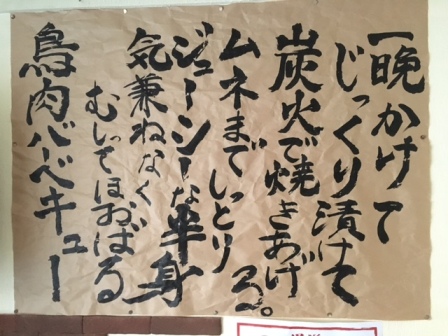 一晩かけて
じっくり漬けて
炭火で焼きあげる。
ムネまでしっとり
ジューシーな半身
気兼ねなく
むしってほおばる
鳥肉バーベキュー